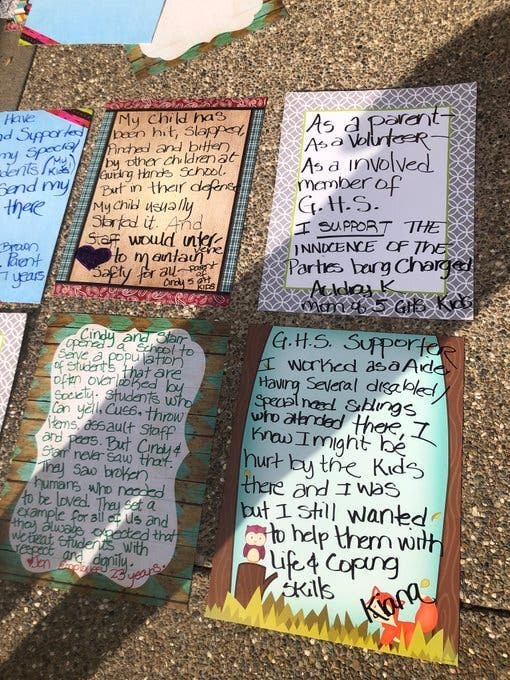 Have
Supported
my special
(My Kids)
send my
there
Parent
7 years
My Child has
been hit, slapped,
Pinched and bitten
by other children at
Guiding Hands school.
But in their defense
My child usually
Started it. And
Staff would inter-
vene
to maintain
Safty for all-
parent of
Cindy 5
Kids
As a parent-
As a Volunteer-
As a involved
member of
G.H.S.
I SUPPORT THE
INNOCENCE OF THE
Parties being Charged
Audrey K
mom of 5 GHS Kids
Cindy and Starr
opened a school to
serve a population
of students that are
often overlooked by
society. Students who
Can yell, cuss, throw
items, assault staff
and peers. But Cindy &
Starr never saw that.
They saw broken
humans who needed
to be loved. They set a
example for all of us and
they always expected that
we treat students with
respect and dignity.
Jen Employee 23 years.
G.H.S. Supporter
I worked as a Aide,
Having Several disabled/
special need Siblings
who attended there, I
Know I might be
hurt by the Kids
there and I was
but I still wanted
to help them with
Life & Coping
Skills
Kiana